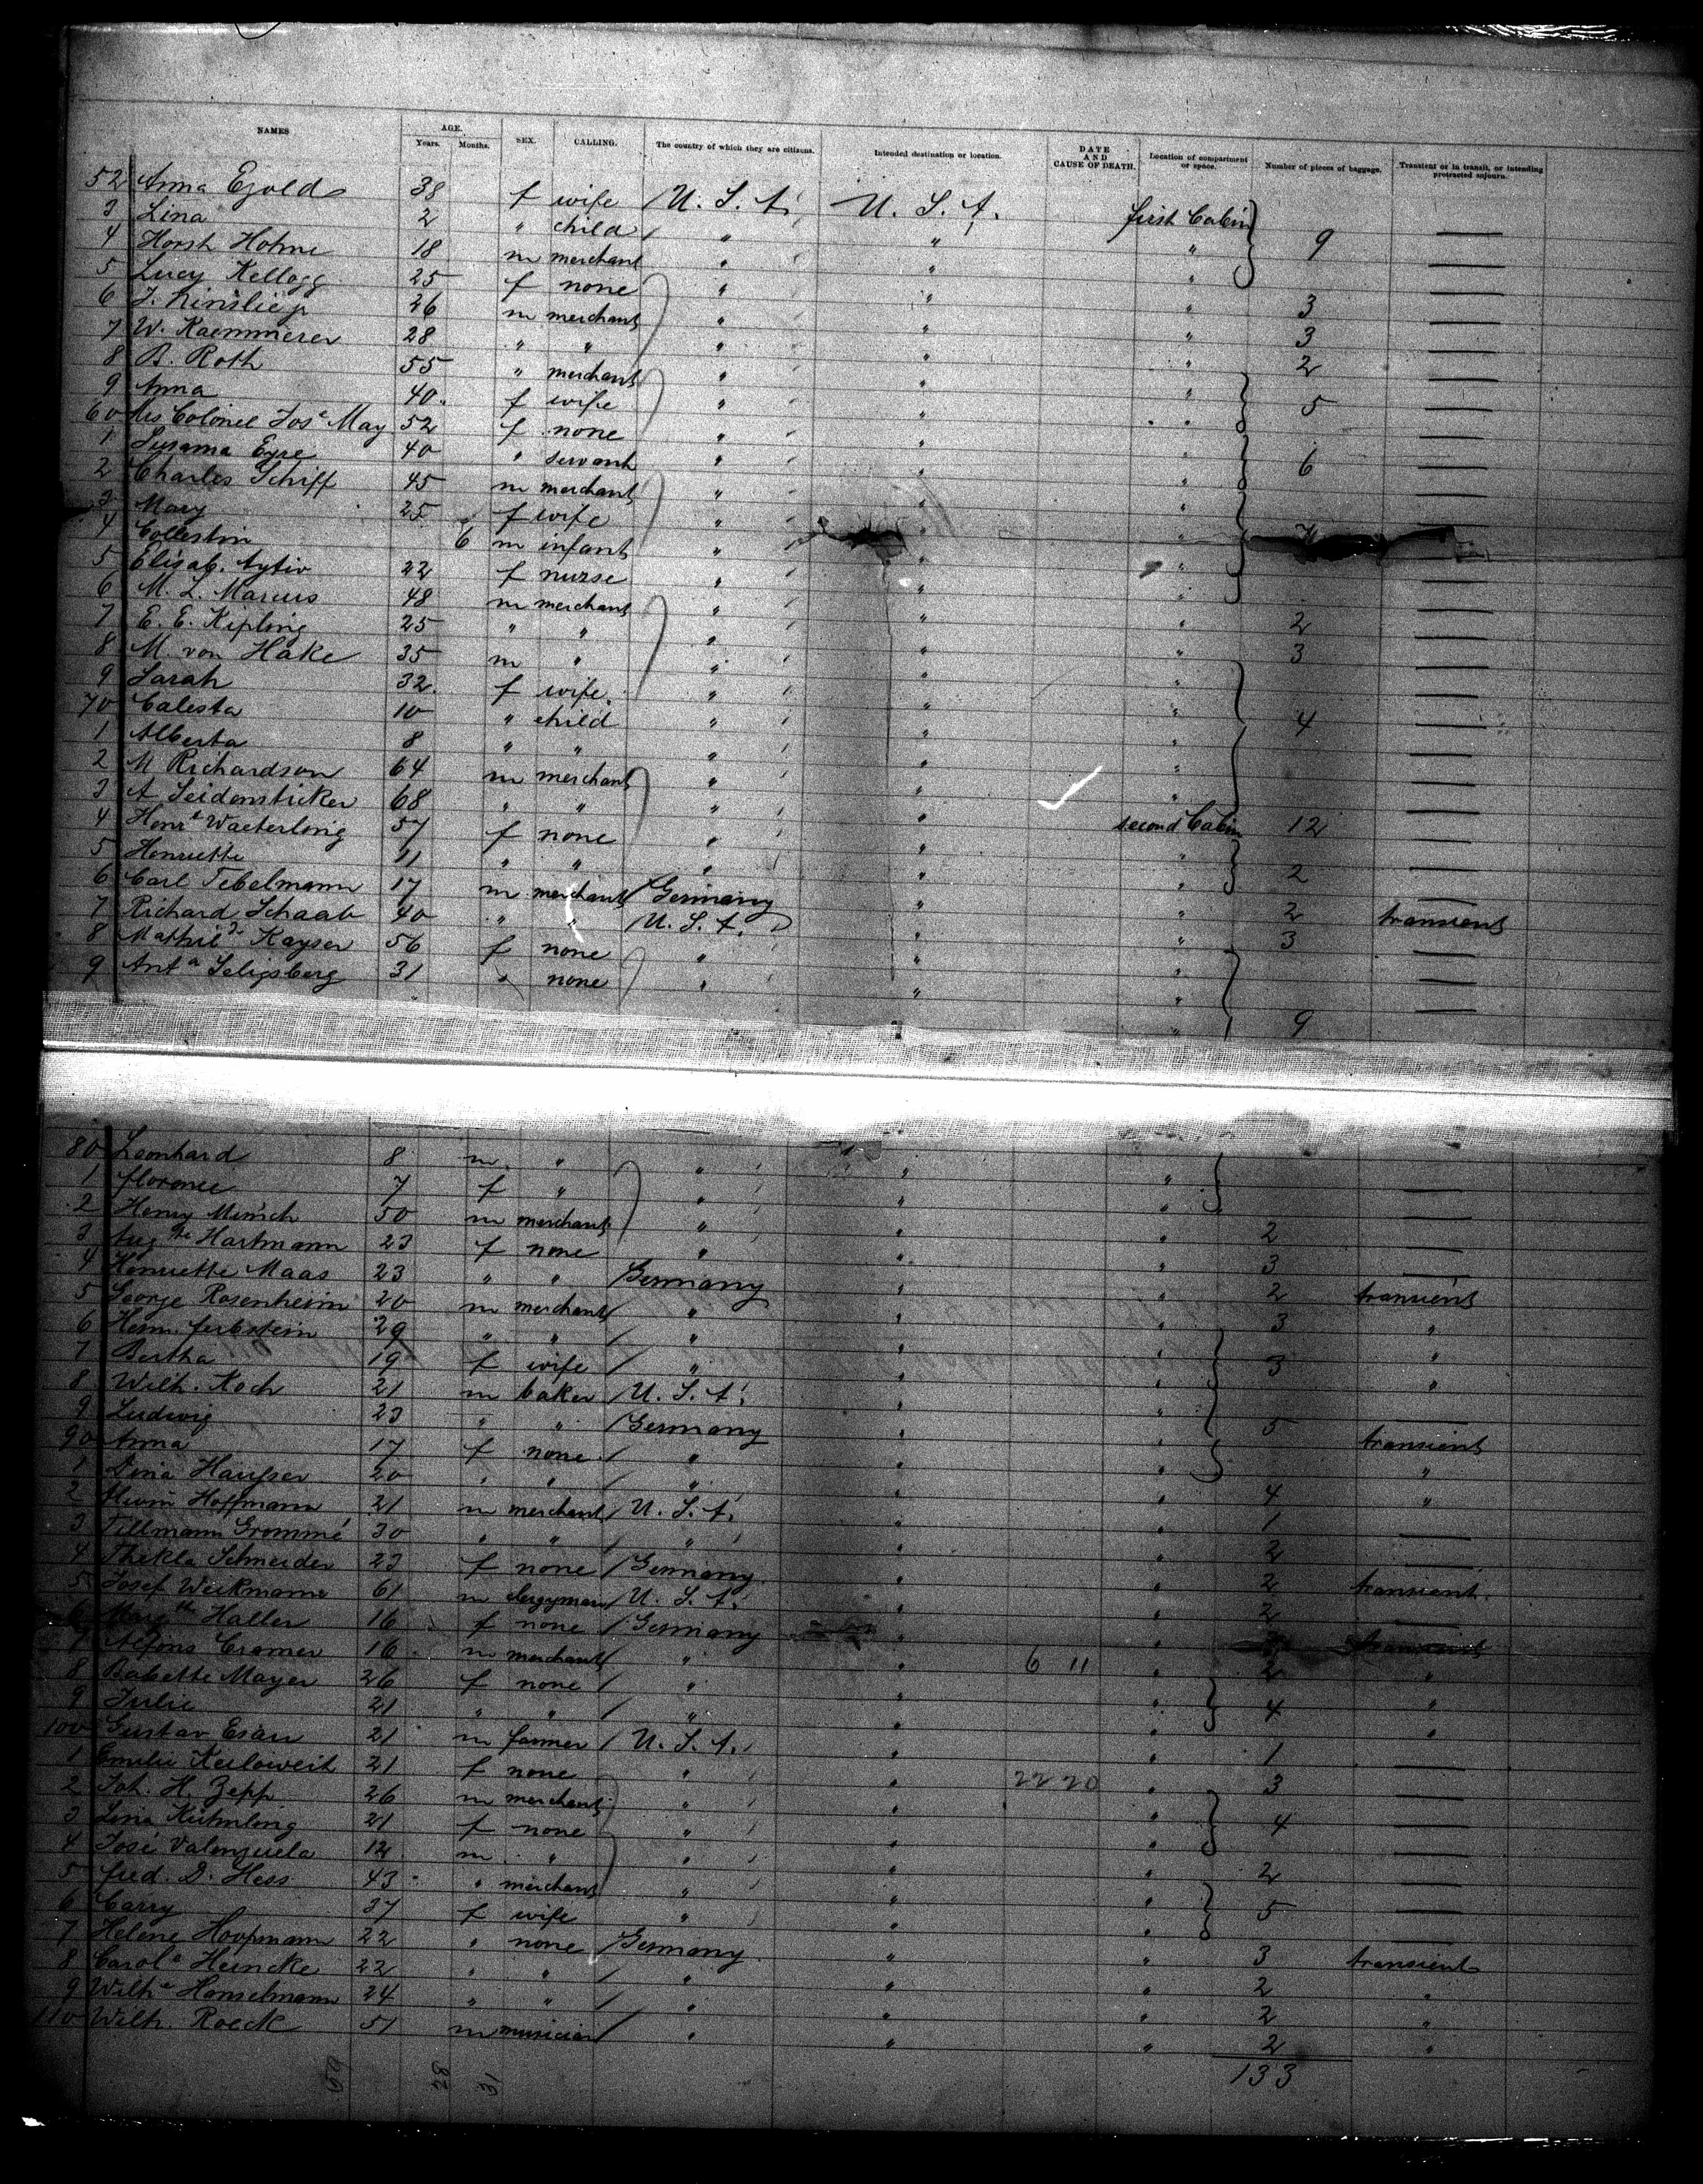 NAMES AGE. Years. Months. SEX. CALLING. The country of which they are citizens. Intended destination or location. DATE AND CAUSE OF DEATH. Location of compartment or space. Number of pieces of baggage. Transient or in transit, or intending protracted sojourn.
52 Anna Ezold 38 f wife U. S. A. U. S. A. first Cabin —
3 Lina 2 " child " " " 9 —
4 Horst Hohne 18 m merchant " " " —
5 Lucy Kellogg 25 f none " " " 3 —
6 26 m merchant " " " 3 —
7 W. Kaemmerer 28 " " " " " 2 —
8 B. Roth 55 " merchant " " " —
9 Anna 40 f wife " " " 5 —
60 Mrs Colonel Jos. May 52 f none " " " —
1 Susanna Eyre 40 " servant " " " 6 —
2 Charles Schiff 45 m merchant " " " —
3 Mary 25 f wife " " " —
4 Collestin 6 m infant " " " —
5 Elisab. 22 f nurse " " " —
6 M. L. Marcus 48 m merchant " " " 2 —
7 E. E. Kipling 25 " " " " " 3 —
8 M. von Hake 35 m " " " " —
9 Sarah 32 f wife " " " —
70 Calesta 10 " child " " " 4 —
1 Alberta 8 " " " " " —
2 M Richardson 64 m merchant " " " —
3 A Seidensticker 68 " " " " second Cabin 12 —
4 Henr Waeterling 57 f none " " " —
5 Henriette 11 " " " " " 2 —
6 Carl Tebelmann 17 m merchant Germany " " 2 transient
7 Richard Schaab 40 " " U. S. A. " " 3 —
8 Mathil Kayser 56 f none " " " —
9 Ant Seligsberg 31 " none " " " 9 —
80 Leonhard 8 m " " " " —
1 florence 7 f " " " " —
2 Henry Münch 50 m merchant " " " 2 —
3 Aug Hartmann 23 f none " " " 3 —
4 Henriette Maas 23 " " Germany " " 2 transient
5 George Rosenheim 20 m merchant " " " 3 "
6 Herm. ferbstein 29 " " " " " "
7 Bertha 19 f wife " " " 3 "
8 Wilh. Koch 21 m baker U. S. A. " " —
9 Ludwig 23 " " Germany " " 5 transient
90 Anna 17 f none " " " "
1 Lina 20 " " " " " 4 "
2 Hoffmann 21 m merchant U. S. A. " " 1 —
3 Tillmann Grommé 30 " " " " " 2 —
4 Thekla Schneider 23 f none Germany " " 2 transient
5 Josef Weikmann 61 m clergyman U. S. A. " " 2 —
6 Marg Haller 16 f none Germany " " transient
7 Alfons Cramer 16 m merchant " " 6 11 " 2 "
8 Babette Mayer 26 f none " " " "
9 Julie 21 " " " " " 4 "
100 Gustav Esau 21 m farmer U. S. A. " " 1 —
1 Emilie 21 f none " " 22 20 " 3 —
2 Joh. H. Zepp 26 m merchant " " " —
3 Lina Kühnling 21 f none " " " 4 —
4 José Valenzuela 12 m " " " " 2 —
5 fred. D. Hess 43 " merchant " " " —
6 Carry 37 f wife " " " 5 —
7 Helene Hoopmann 22 " none Germany " " 3 transient
8 Carol Heincke 22 " " " " " 2 "
9 Wilh Honselmann 24 " " " " " 2 "
110 Wilh. Roeck 51 m musician " " " 2 "
133
59 28 31